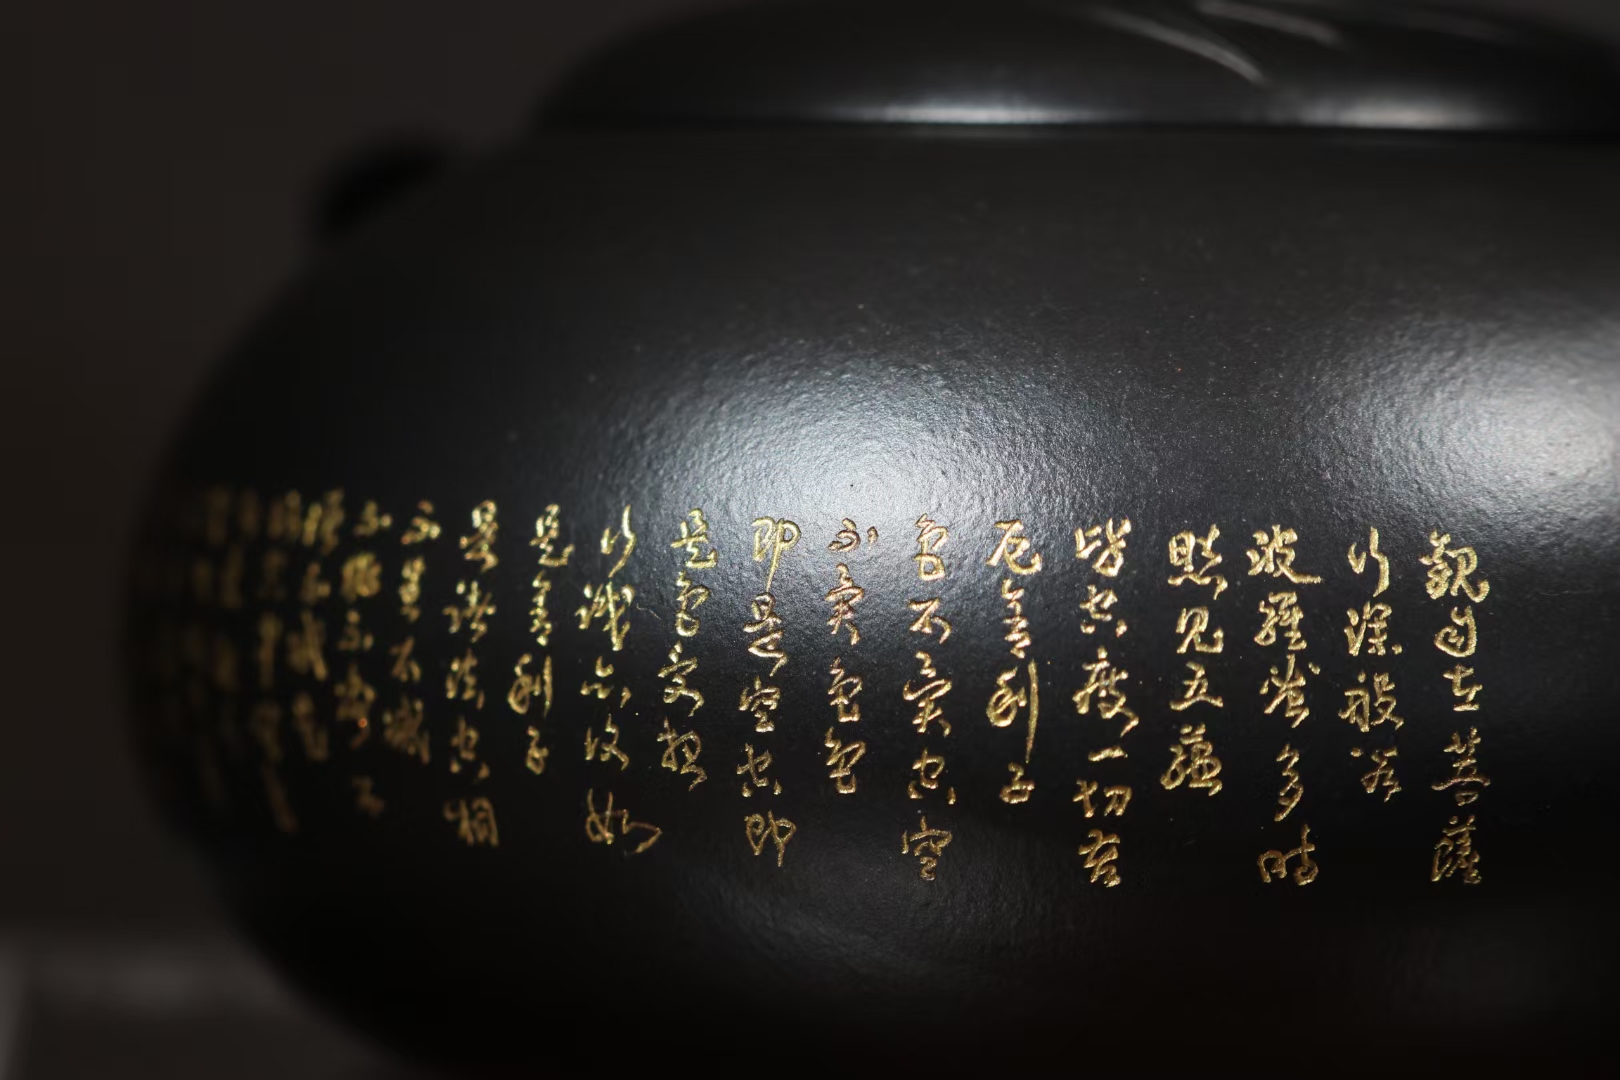 觀自在菩薩
行深般若
波羅蜜多時
照見五蘊
皆空度一切苦
厄舍利子
色不異空空
不異色色
即是空空即
是色受想
行識亦復如
是舍利子
是諸法空相
不生不滅
不垢不淨不
增不減是